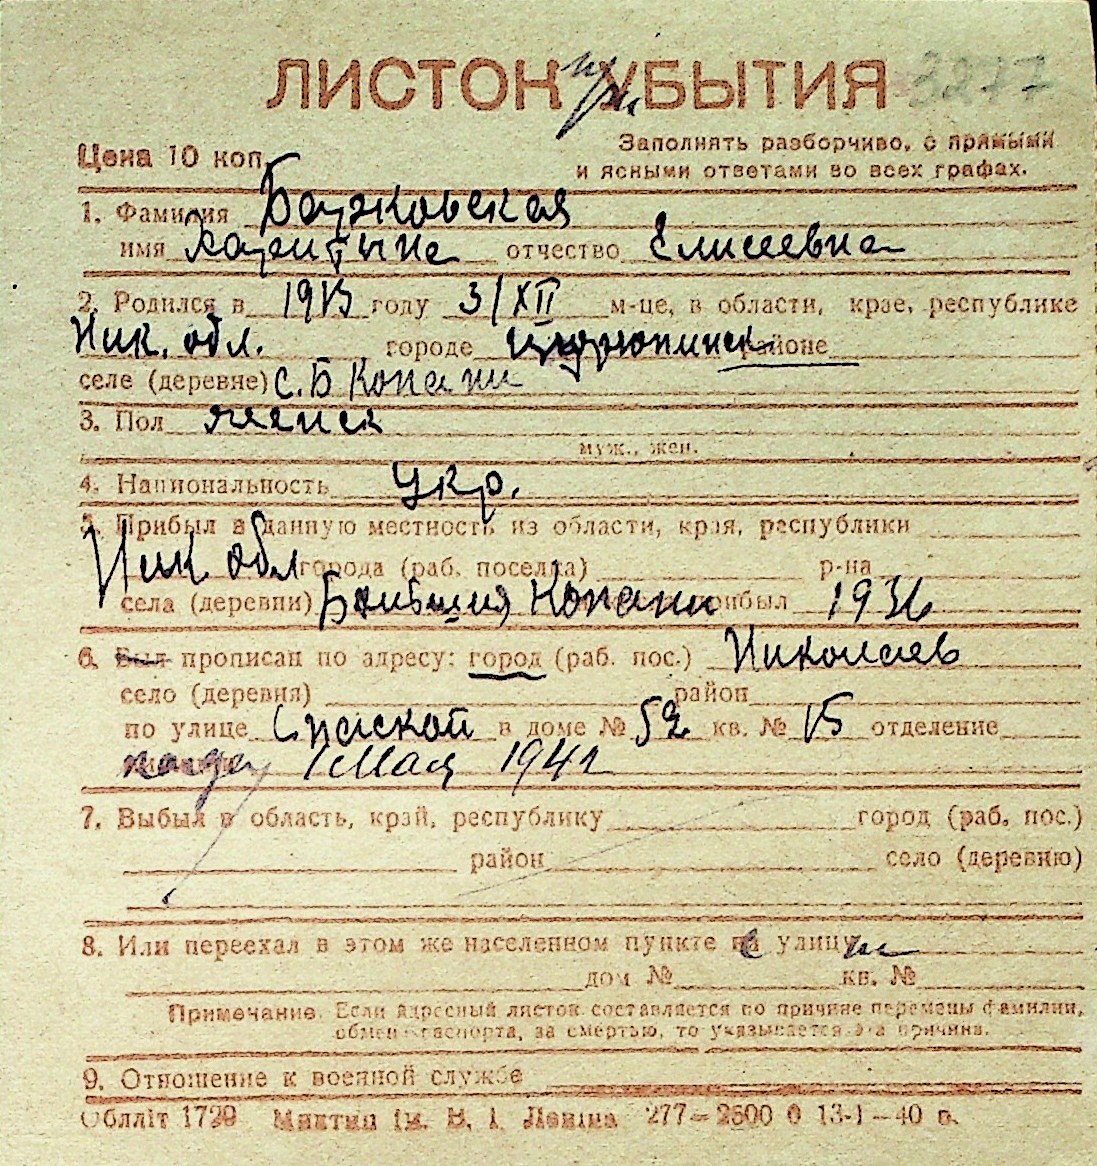 ЛИСТОК УБЫТИЯ 3277
пр.
Цена 10 коп.
Заполнять разборчиво, с прямыми
и ясными ответами во всех графах.
1. Фамилия Бажковская
имя Харитына отчество Елисеевна
2. Родился в 1913 году 3/XII м-це, в области, крае, республике
Ник. обл. городе Цюрюпинск районе
селе (деревне) с. Б Копани
3. Пол женск
муж., жен.
4. Национальность Укр.
5. Прибыл в данную местность из области, края, республики
Ник. обл города (раб. поселка) р-на
села (деревни) Большия Копани прибыл 1936
6. Был прописан по адресу: город (раб. пос.) Николаев
село (деревня) район
по улице Спаской в доме № 52 кв. № 15 отделение
1 Мая 1941
7. Выбыл в область, край, республику город (раб. пос.)
район село (деревню)
8. Или переехал в этом же населенном пункте на улицу
дом № кв. №
Примечание. Если адресный листок составляется по причине перемены фамилии,
обмен паспорта, за смертью, то указывается эта причина.
9. Отношение к военной службе
Обллiт 1729 Миктип iм. В. I. Ленiна 277—2500 0 13-1—40 р.